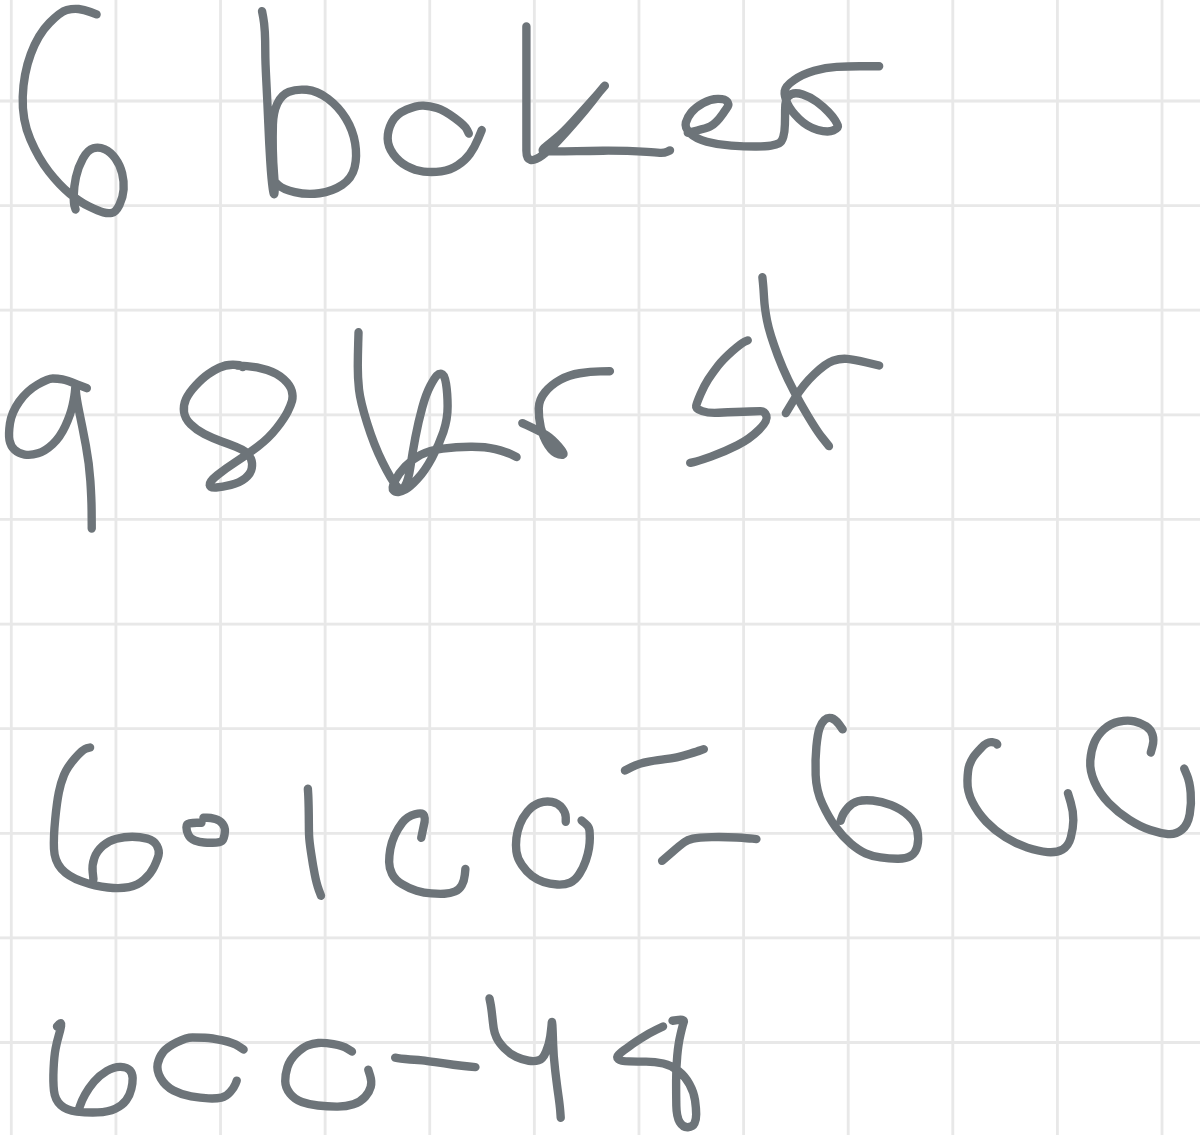 6 boker
98kr st
6·100=600
600-48